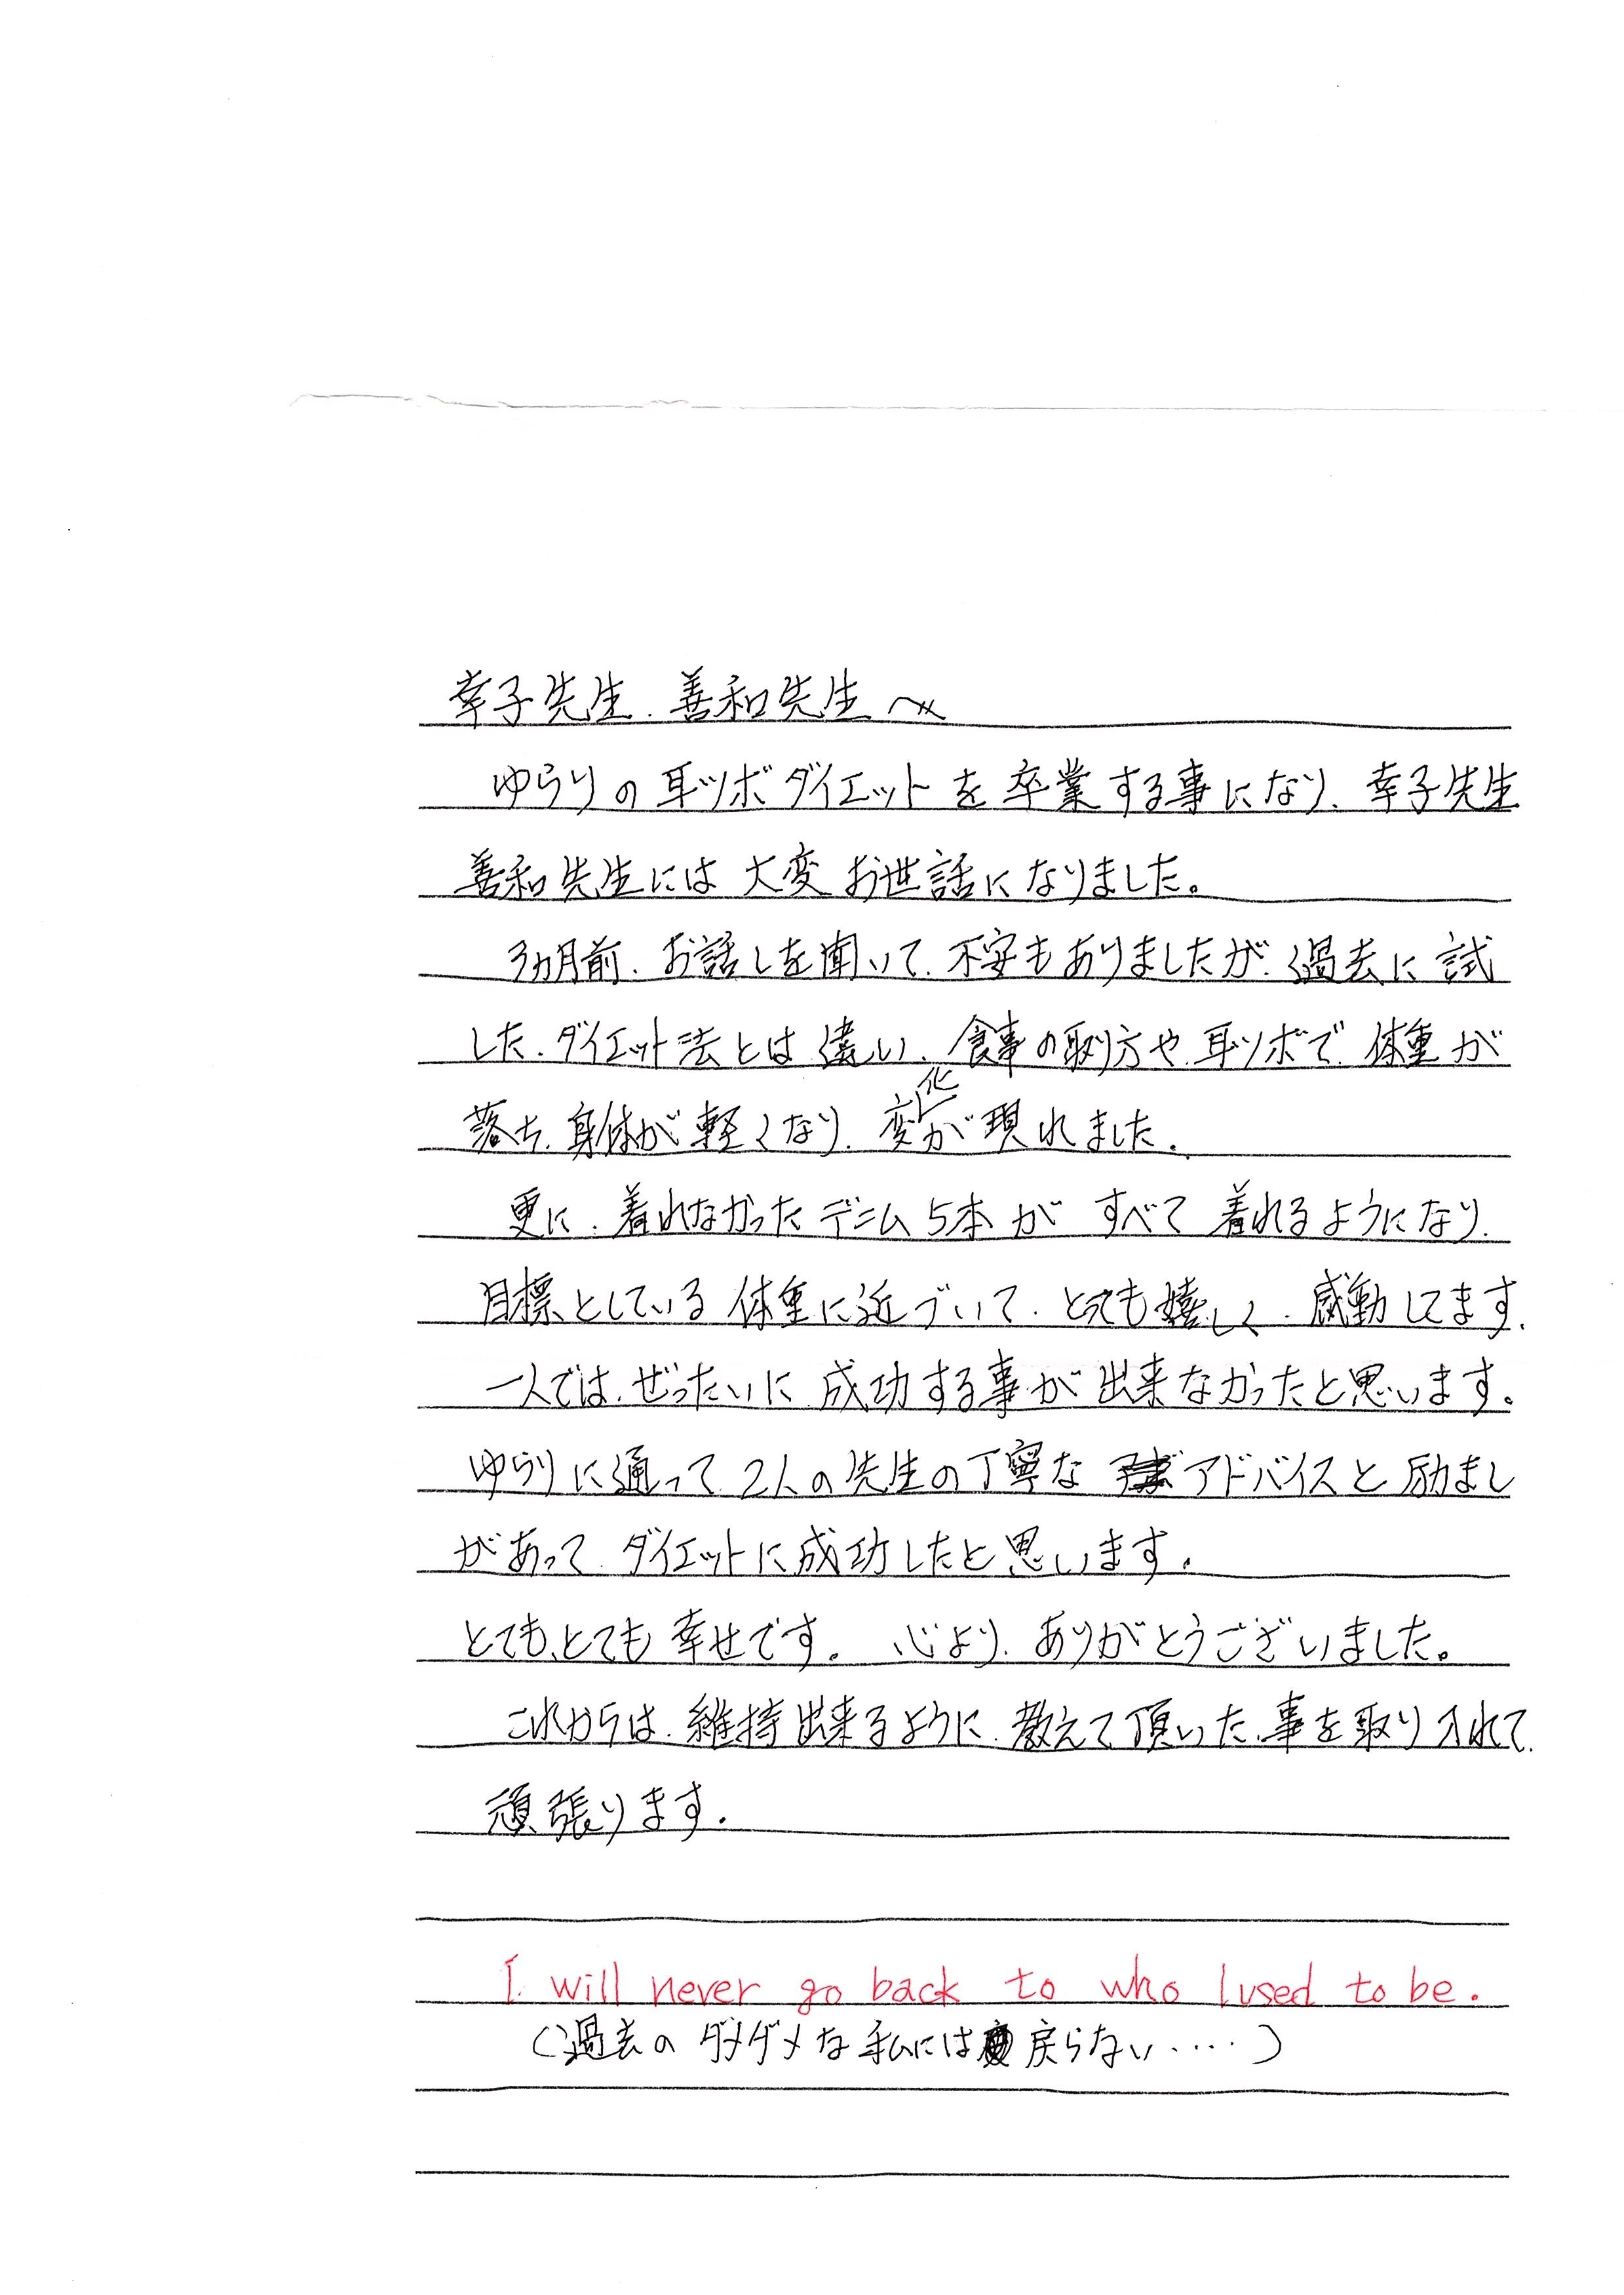 幸子先生、善和先生へ
ゆらりの耳ツボダイエットを卒業する事になり、幸子先生
善和先生には大変お世話になりました。
3ヵ月前、お話しを聞いて、不安もありましたが、過去に試
した、ダイエット法とは違い、食事の取り方や、耳ツボで、体重が
落ち、身体が軽くなり、変化が現れました。
更に、着れなかったデニム5本がすべて着れるようになり、
目標としている体重に近づいて、とても嬉しく、感動してます。
一人では、ぜったいに成功する事が出来なかったと思います。
ゆらりに通って、2人の先生の丁寧なアドバイスと励まし
があって、ダイエットに成功したと思います。
とても、とても幸せです。心より、ありがとうございました。
これからは、維持出来るように、教えて頂いた、事を取り入れて、
頑張ります。
I will never go back to who I used to be.
(過去のダメダメな私には戻らない・・・・・)